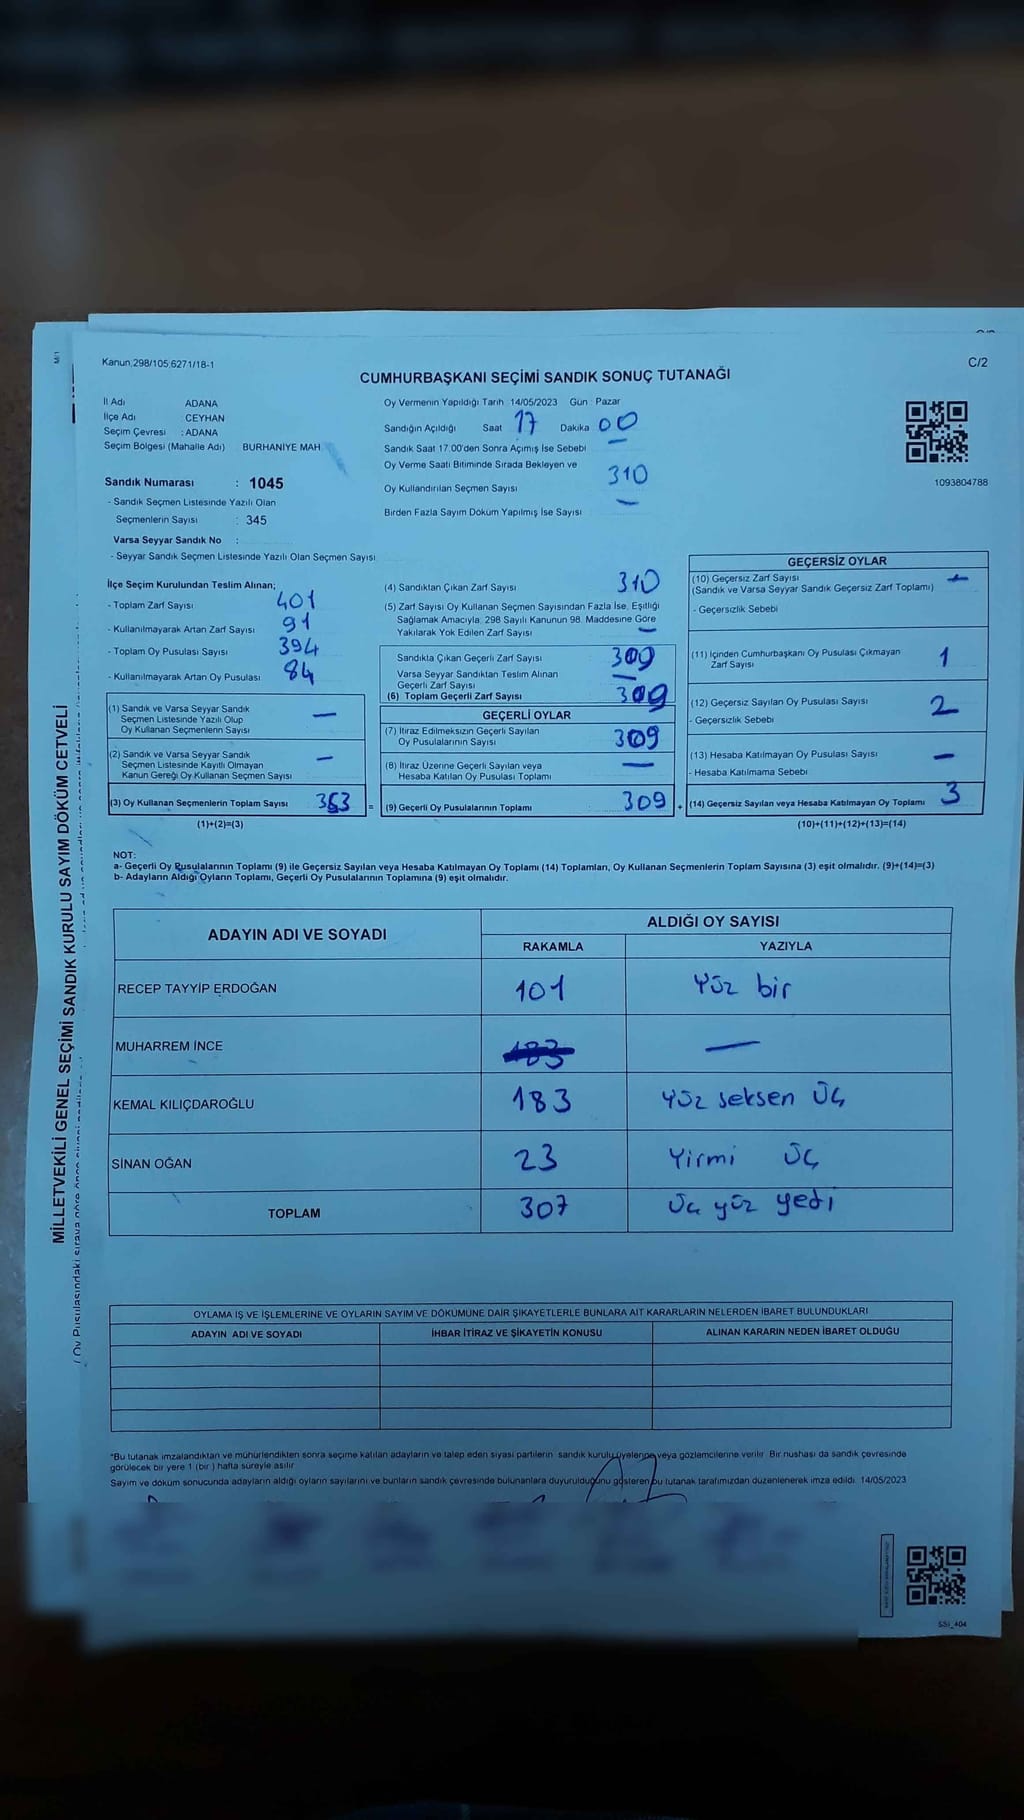 Kanun 298/105 6271/18-1
C/2
CUMHURBAŞKANI SEÇİMİ SANDIK SONUÇ TUTANAĞI
İl Adı ADANA
İlçe Adı CEYHAN
Seçim Çevresi : ADANA
Seçim Bölgesi (Mahalle Adı) BURHANİYE MAH.
Sandık Numarası : 1045
- Sandık Seçmen Listesinde Yazılı Olan
Seçmenlerin Sayısı : 345
Varsa Seyyar Sandık No :
- Seyyar Sandık Seçmen Listesinde Yazılı Olan Seçmen Sayısı
Oy Vermenin Yapıldığı Tarih 14/05/2023 Gün : Pazar
Sandığın Açıldığı Saat 17 Dakika 00
Sandık Saat 17.00'den Sonra Açımış İse Sebebi —
Oy Verme Saati Bitiminde Sırada Bekleyen ve
Oy Kullandırılan Seçmen Sayısı 310
Birden Fazla Sayım Döküm Yapılmış İse Sayısı —
1093804788
İlçe Seçim Kurulundan Teslim Alınan;
- Toplam Zarf Sayısı 401
- Kullanılmayarak Artan Zarf Sayısı 91
- Toplam Oy Pusulası Sayısı 394
- Kullanılmayarak Artan Oy Pusulası 84
(1) Sandık ve Varsa Seyyar Sandık
Seçmen Listesinde Yazılı Olup
Oy Kullanan Seçmenlerin Sayısı —
(2) Sandık ve Varsa Seyyar Sandık
Seçmen Listesinde Kayıtlı Olmayan
Kanun Gereği Oy Kullanan Seçmen Sayısı —
(3) Oy Kullanan Seçmenlerin Toplam Sayısı =
(1)+(2)=(3)
(4) Sandıktan Çıkan Zarf Sayısı 310
(5) Zarf Sayısı Oy Kullanan Seçmen Sayısından Fazla İse, Eşitliği
Sağlamak Amacıyla 298 Sayılı Kanunun 98. Maddesine Göre
Yakılarak Yok Edilen Zarf Sayısı —
Sandıkta Çıkan Geçerli Zarf Sayısı 309
Varsa Seyyar Sandıktan Teslim Alınan
Geçerli Zarf Sayısı —
(6) Toplam Geçerli Zarf Sayısı 309
GEÇERLİ OYLAR
(7) İtiraz Edilmeksizin Geçerli Sayılan
Oy Pusulalarının Sayısı 309
(8) İtiraz Üzerine Geçerli Sayılan veya
Hesaba Katılan Oy Pusulası Toplamı —
(9) Geçerli Oy Pusulalarının Toplamı 309 +
GEÇERSİZ OYLAR
(10) Geçersiz Zarf Sayısı —
(Sandık ve Varsa Seyyar Sandık Geçersiz Zarf Toplamı)
- Geçersizlik Sebebi
(11) İçinden Cumhurbaşkanı Oy Pusulası Çıkmayan
Zarf Sayısı 1
(12) Geçersiz Sayılan Oy Pusulası Sayısı 2
- Geçersizlik Sebebi
(13) Hesaba Katılmayan Oy Pusulası Sayısı —
- Hesaba Katılmama Sebebi
(14) Geçersiz Sayılan veya Hesaba Katılmayan Oy Toplamı 3
(10)+(11)+(12)+(13)=(14)
NOT:
a- Geçerli Oy Pusulalarının Toplamı (9) ile Geçersiz Sayılan veya Hesaba Katılmayan Oy Toplamı (14) Toplamları, Oy Kullanan Seçmenlerin Toplam Sayısına (3) eşit olmalıdır. (9)+(14)=(3)
b- Adayların Aldığı Oyların Toplamı, Geçerli Oy Pusulalarının Toplamına (9) eşit olmalıdır.
ADAYIN ADI VE SOYADI ALDIĞI OY SAYISI
RAKAMLA YAZIYLA
RECEP TAYYİP ERDOĞAN 101 Yüz bir
MUHARREM İNCE 183 —
KEMAL KILIÇDAROĞLU 183 Yüz seksen üç
SİNAN OĞAN 23 Yirmi üç
TOPLAM 307 Üç yüz yedi
OYLAMA İŞ VE İŞLEMLERİNE VE OYLARIN SAYIM VE DÖKÜMÜNE DAİR ŞİKAYETLERLE BUNLARA AİT KARARLARIN NELERDEN İBARET BULUNDUKLARI
ADAYIN ADI VE SOYADI İHBAR İTİRAZ VE ŞİKAYETİN KONUSU ALINAN KARARIN NEDEN İBARET OLDUĞU
*Bu tutanak imzalandıktan ve mühürlendikten sonra seçime katılan adayların ve talep eden siyasi partilerin sandık kurulu üyelerine veya gözlemcilerine verilir. Bir nüshası da sandık çevresinde
görülecek bir yere 1 (bir ) hafta süreyle asılır
Sayım ve döküm sonucunda adayların aldığı oyların sayılarını ve bunların sandık çevresinde bulunanlara duyurulduğunu gösteren bu tutanak tarafımızdan düzenlenerek imza edildi. 14/05/2023
SSİ_404
MİLLETVEKİLİ GENEL SEÇİMİ SANDIK KURULU SAYIM DÖKÜM CETVELİ